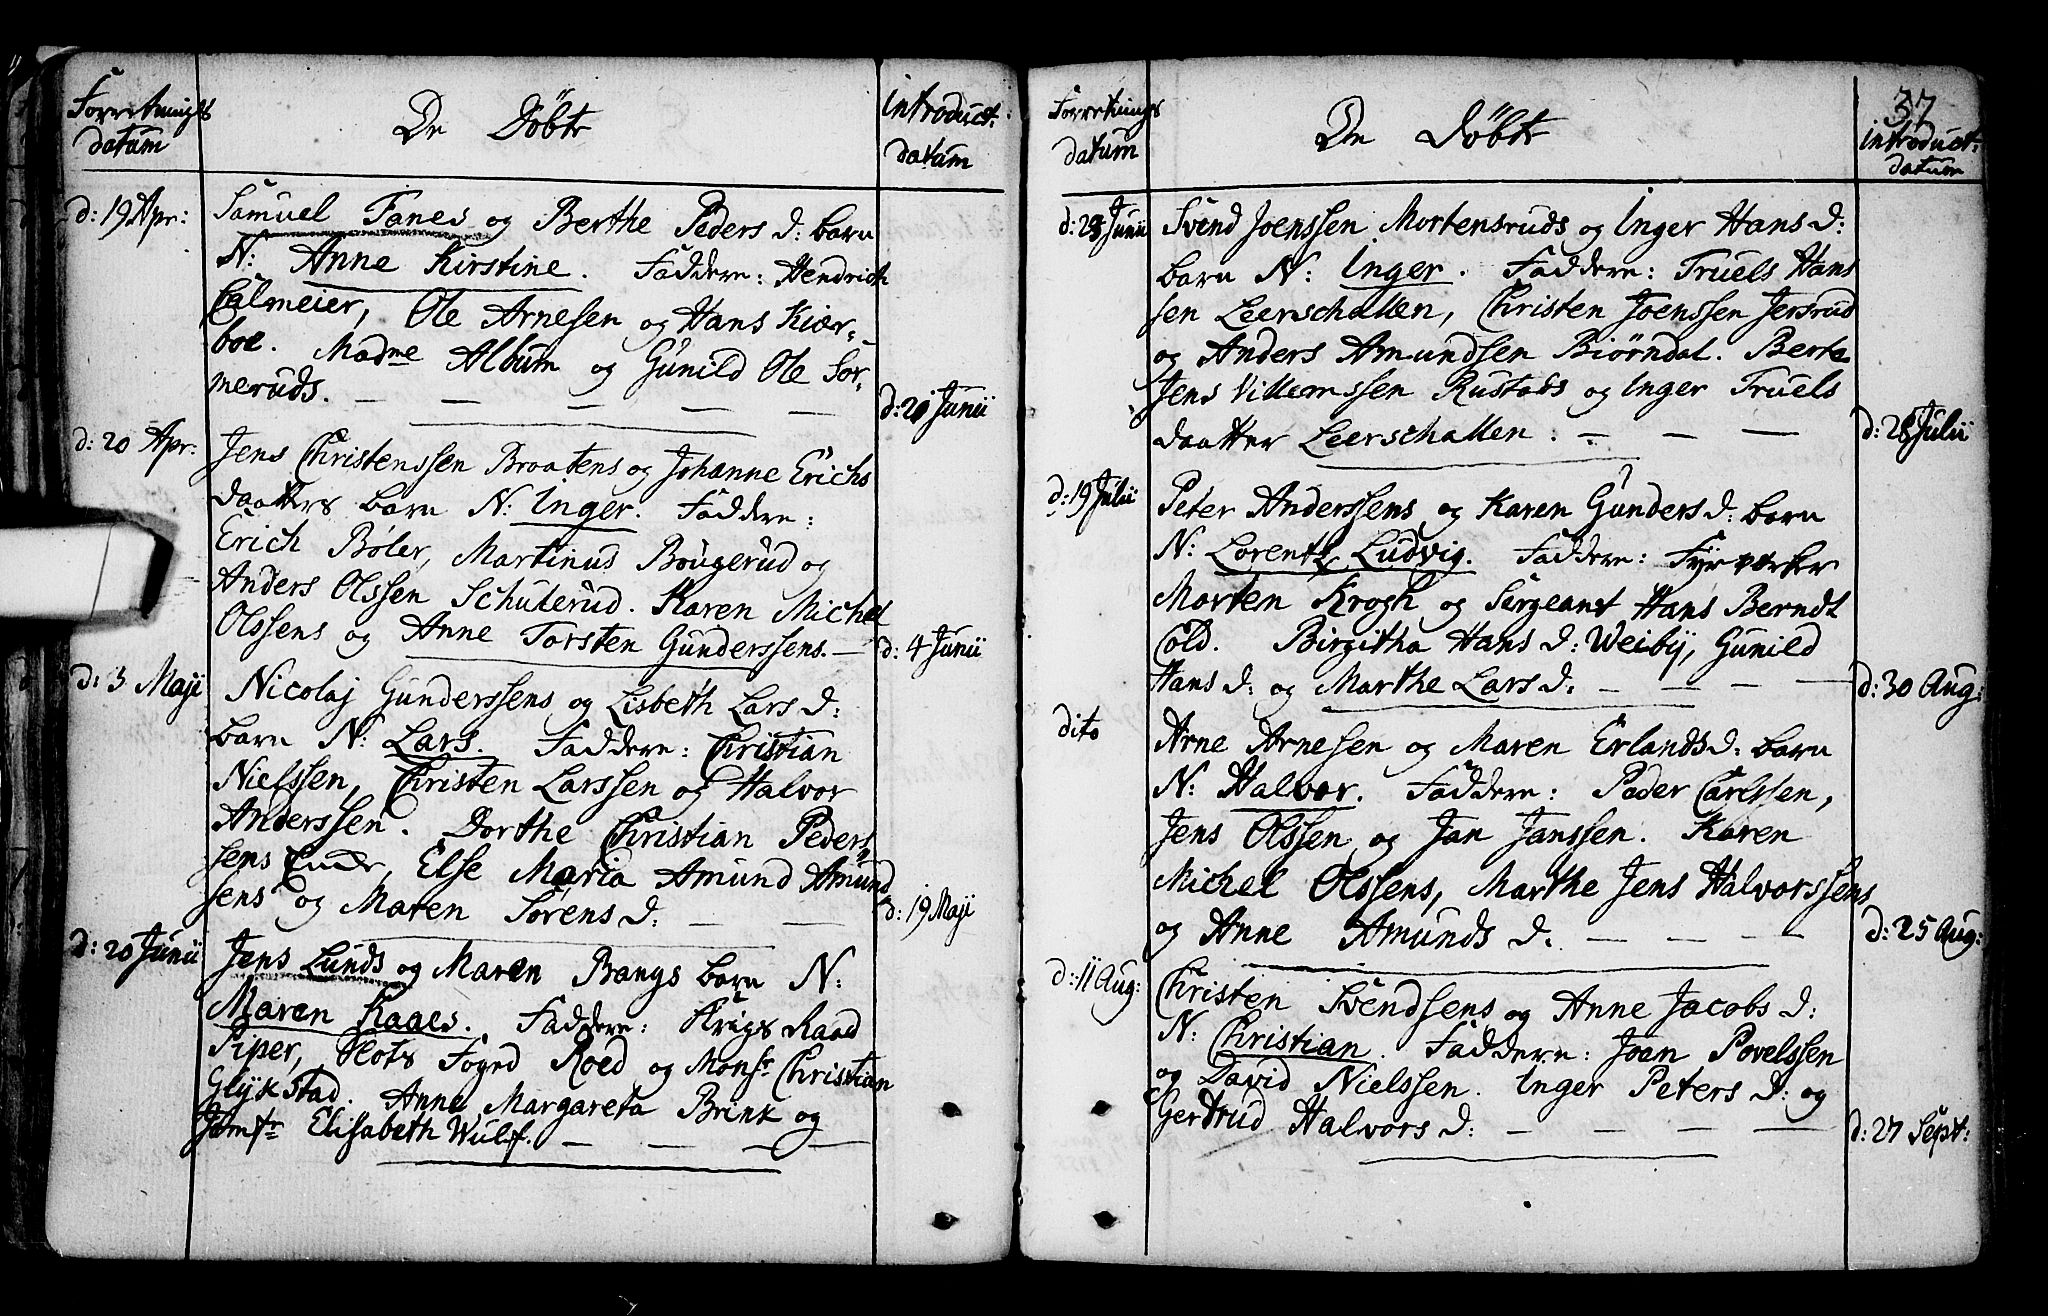 Forretnings
datum
De Döbte
introduct:
datum
d: 19 Apr:
Samuel Fanes og Berthe Peders d: barn
N: Anne Kirstine. Faddere: Hendrich
Calmeier, Ole Arnesen og Hans Kiær-
boe. Madme Album og Gunild Ole Sör-
neruds.
d: 20 Junii
d: 20 Apr:
Jens Christenssen Braatens og Johanne Erichs
daatters barn N: Inger. Faddere:
Erich Böler, Martinus Bougerud og
Anders Olssen Schulerud. Karen Michel
Olssens og Anne Torsten Gunderssens.
d: 4 Junii
d: 3 Maji
Nicolaj Gunderssens og Lisbeth Lars d:
barn N: Lars. Faddere: Christian
Nielssen, Christen Larssen og Halvor
Anderssen. Dorthe Christian Peders
sens Else Maria Amund Amund
sens og Maren Sørens d:
d: 19 Maji
d: 20 Junii
Jens Lunds og Maren Bangs barn N:
Maren Kaaes. Faddere: Krigs Raad
Piper, Slots Foged Roed og Monsr Christian
Glykstad. Anne Margareta Brink og
Jomfr Elisabeth Wulf.
37
Forretnings
datum
De Döbte
introduct:
datum
d: 28 Junii
Svend Joenssen Mortensruds og Inger Hans d:
barn N: Inger. Faddere: Truels Hans
sen Leerschallen, Christen Joenssen Jersrud
og Anders Amundsen Biørndal. Berte
Jens Villemssen Rustads og Inger Truels
daatter Leerschallen.
d: 28 Julii
d: 19 Julii
Peter Anderssens og Karen Gunders d: barn
N: Lorentz Ludvig. Faddere: Fyrværker
Morten Krogh og Sergeant Hans Berndt
Cold. Birgitha Hans d: Weiby, Gunild
Hans d: og Marthe Lars d:
d: 30 Aug:
dito
Arne Arnesen og Maren Erlands d: barn
N: Halvor. Faddere: Peder Carlssen,
Jens Olssen og Jan Janssen. Karen
Michel Olssens, Marthe Jens Halvorssens
og Anne Amunds d:
d: 25 Aug:
d: 11 Aug:
Christen Svendsens og Anne Jacobs d:
N: Christian. Faddere: Joan Povelssen
og David Nielssen. Inger Peters d: og
Gertrud Halvors d:
d: 27 Sept: